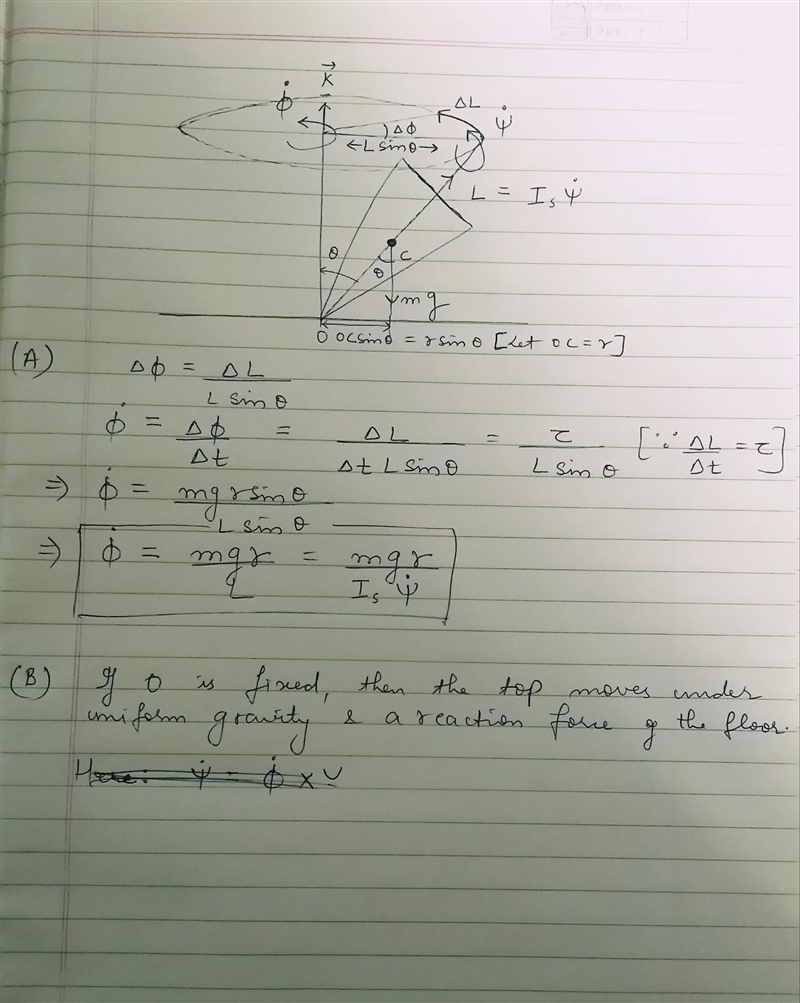 K⃗
φ̇
ΔL
ψ̇
Δφ
L sinθ
L = I_s ψ̇
θ
C
θ
mg
O OC sinθ = r sinθ [Let OC = r]
(A) Δφ = ΔL / L sinθ
φ̇ = Δφ/Δt = ΔL / Δt L sinθ = τ / L sinθ [∵ ΔL/Δt = τ]
⇒ φ̇ = mgr sinθ / L sinθ
⇒ φ̇ = mgr / L = mgr / I_s ψ̇
(B) If O is fixed, then the top moves under
uniform gravity & a reaction force of the floor.
Here: ψ̇ = φ̇ ×